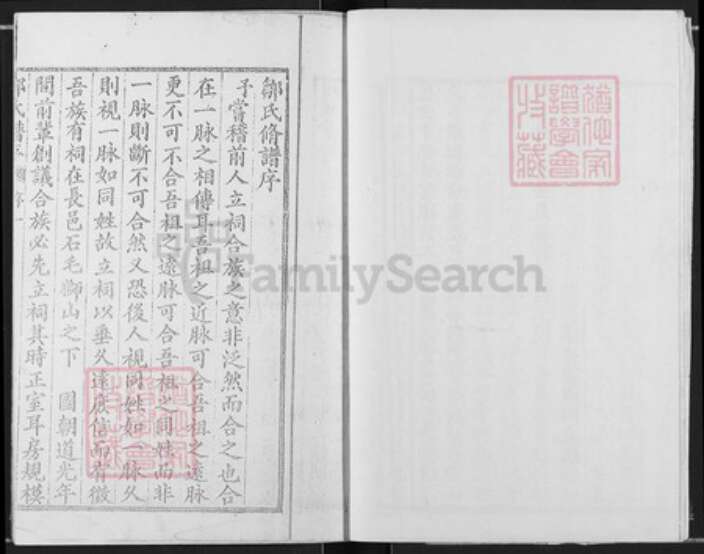 鄒氏脩譜序
予嘗稽前人立祠合族之意非泛然而合之也合
在一脉之相傳耳吾祖之近脉可合吾祖之遠脉
更不可不合吾祖之遠脉可合吾祖之同姓而非
一脉則斷不可合然又恐後人視同姓如一脉久
則視一脉如同姓故立祠以垂久遠庶信而有徵
吾族有祠在長邑石毛獅山之下 國朝道光年
間前輩創議合族必先立祠其時正室耳房規模
序一
譜學會
收藏
FamilySearch